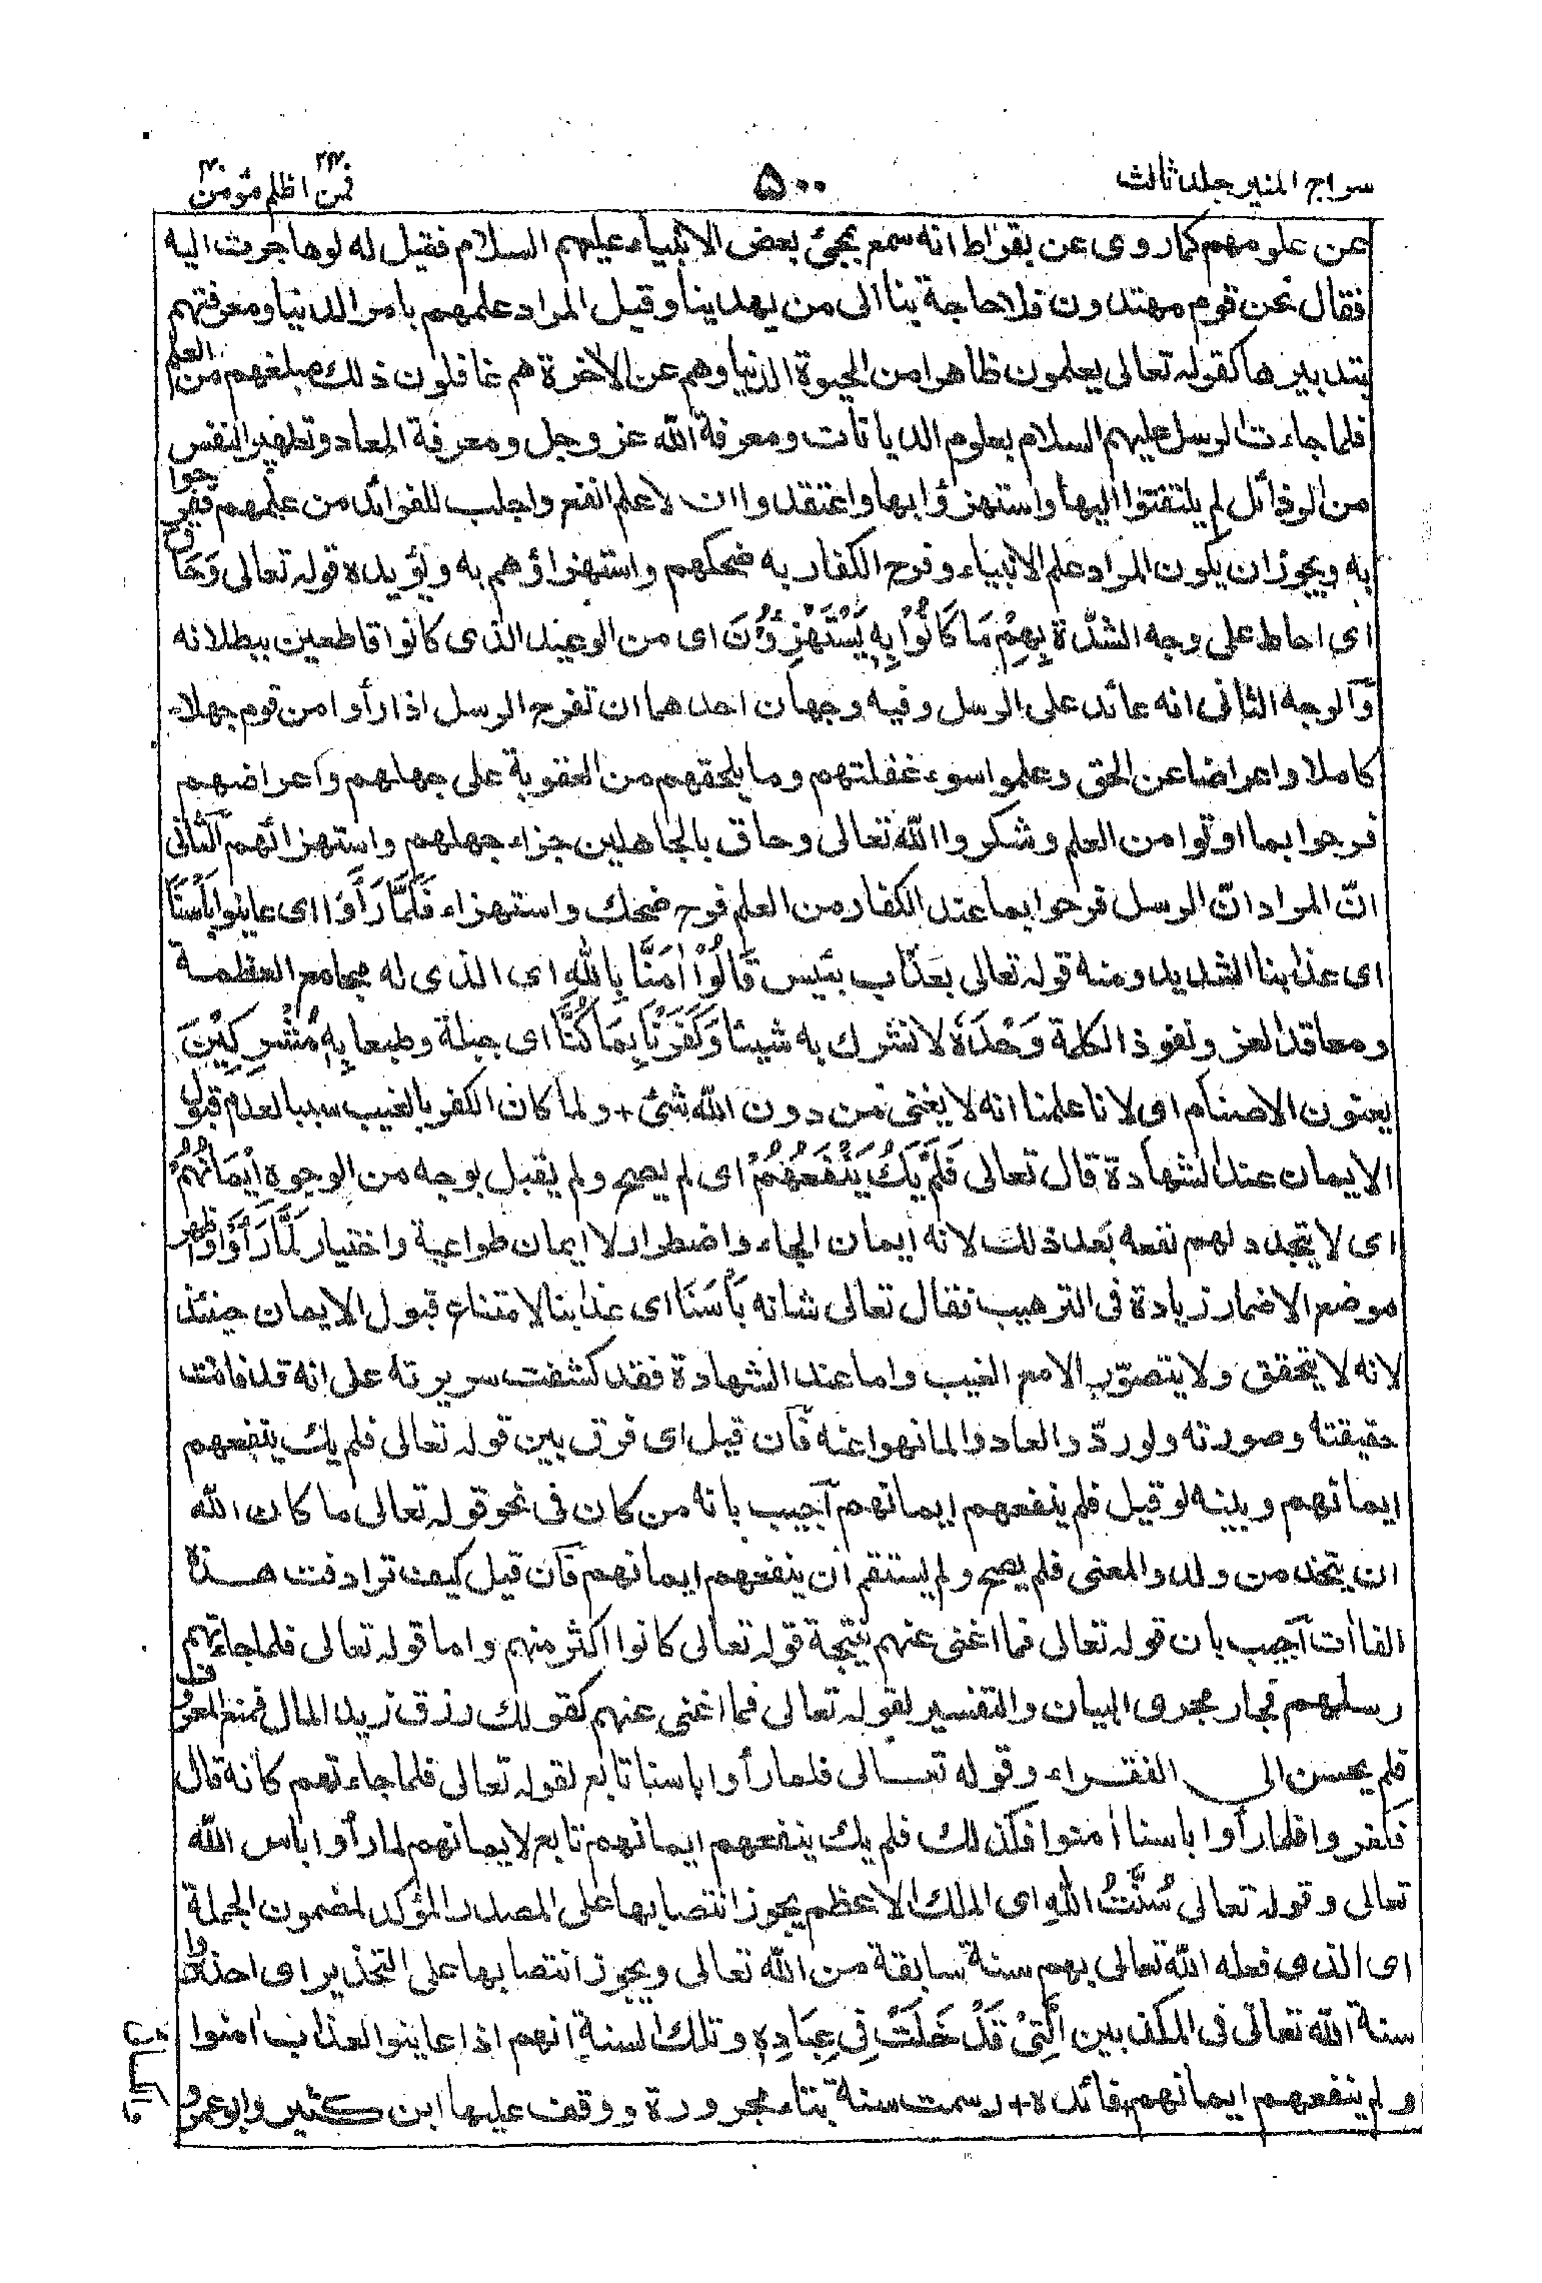 سراج المنير جلد ثالث
۵۰۰
فمن اظلم ۲۴ مؤمن ۴۰
عن علومهم كما روى عن بقراط انه سمع بمجئ بعض الانبياء عليهم السلام فقيل له لو هاجرت اليه
فقال نحن قوم مهتدون فلا حاجة بنا الى من يهدينا وقيل المراد علمهم بامر الدنيا ومعرفتهم
بتدبيرها كقوله تعالى يعلمون ظاهرا من الحيوة الدنيا وهم عن الآخرة هم غافلون ذلك مبلغهم من العلم
فلما جاءت الرسل عليهم السلام بعلوم الديانات ومعرفة الله عز وجل ومعرفة المعاد وتطهير النفس
من الرذائل لم يلتفتوا اليها واستهزؤا بها واعتقدوا ان لا علم انفع واجلب للفوائد من علمهم ففرحوا
به ويجوز ان يكون المراد علم الانبياء وفرح الكفار به ضحكهم واستهزاؤهم به ويؤيده قوله تعالى وَحَاقَ
اى احاط على وجه الشدّة بِهِمْ مَا كَانُوْا بِهٖ يَسْتَهْزِؤُنَ اى من الوعيد الذى كانوا قاطعين ببطلانه
وَالوجه الثانى انه عائد على الرسل وفيه وجهان احدهما ان تفرح الرسل اذا رأوا من قوم جهلاء
كاملا واعراضا عن الحق وعلموا سوء غفلتهم وما يلحقهم من العقوبة على جهلهم واعراضهم
فرحوا بما اوتوا من العلم وشكروا الله تعالى وحاق بالجاهلين جزاء جهلهم واستهزائهم الثانى
انّ المراد انّ الرسل فرحوا بما عند الكفار من العلم فرح ضحك واستهزاء فَلَمَّا رَأَوْا اى عاينوا بَأْسَنَا
اى عذابنا الشديد ومنه قوله تعالى بعذاب بئيس قَالُوْا اٰمَنَّا بِاللهِ اى الذى له مجامع العظمة
ومعاقد العز ونفوذ الكلمة وَحْدَهٗ لا نشرك به شيئا وَكَفَرْنَا بِمَا كُنَّا اى جبلة وطبعا بِهٖ مُشْرِكِيْنَ
يعنون الاصنام اى لانا علمنا انه لا يغنى من دون الله شئ + ولما كان الكفر بالغيب سببا لعدم قبول
الايمان عند الشهادة قال تعالى فَلَمْ يَكُ يَنْفَعُهُمْ اى لم يصح ولم يقبل بوجه من الوجوه اِيْمَانُهُمْ
اى لا يتجدد لهم نفعه بعد ذلك لانه ايمان الجاء واضطرار لا ايمان طواعية واختيار لَمَّا رَأَوْا واظهر
موضع الاضمار زيادة فى الترهيب فقال تعالى شانه بَأْسَنَا اى عذابنا لامتناع قبول الايمان حينئذ
لانه لا يتحقق ولا يتصوّر الا مع الغيب واما عند الشهادة فقد كشفت سريرته على انه قد فاتت
حقيقته وصورته ولو ردّوا لعادوا لما نهوا عنه فان قيل اى فرق بين قوله تعالى فلم يك ينفعهم
ايمانهم وبينه لو قيل فلم ينفعهم ايمانهم آجيب بانه من كان فى نحو قوله تعالى ما كان الله
ان يتخذ من ولد والمعنى فلم يصح ولم يستقم ان ينفعهم ايمانهم فان قيل كيف ترادفت هذه
الفاات آجيب بان قوله تعالى فما اغنى عنهم نتيجة قوله تعالى كانوا اكثر منهم واما قوله تعالى فلما جاءتهم
رسلهم فجار مجرى البيان والتفسير لقوله تعالى فما اغنى عنهم كقولك رزق زيد المال فمنع المعروف
فلم يحسن الى الفقراء وقوله تعالى فلما رأوا باسنا تابع لقوله تعالى فلما جاءتهم كانه قال
فكفروا فلما رأوا باسنا اٰمنوا فكذلك فلم يك ينفعهم ايمانهم تابع لايمانهم لما رأوا باس الله
تعالى وقوله تعالى سُنَّتَ اللهِ اى الملك الاعظم يجوز انتصابها على المصدر المؤكد لمضمون الجملة
اى الذى فعله الله تعالى بهم سنة سابقة من الله تعالى ويجوز انتصابها على التحذير اى احذروا
سنة الله تعالى فى المكذبين الَّتِىْ قَدْ خَلَتْ فِى عِبَادِهٖ وتلك السنة انهم اذا عاينوا العذاب اٰمنوا
ولم ينفعهم ايمانهم فائدة + رسمت سنة بتاء مجرورة ووقف عليها ابن كثير وابو عمرو